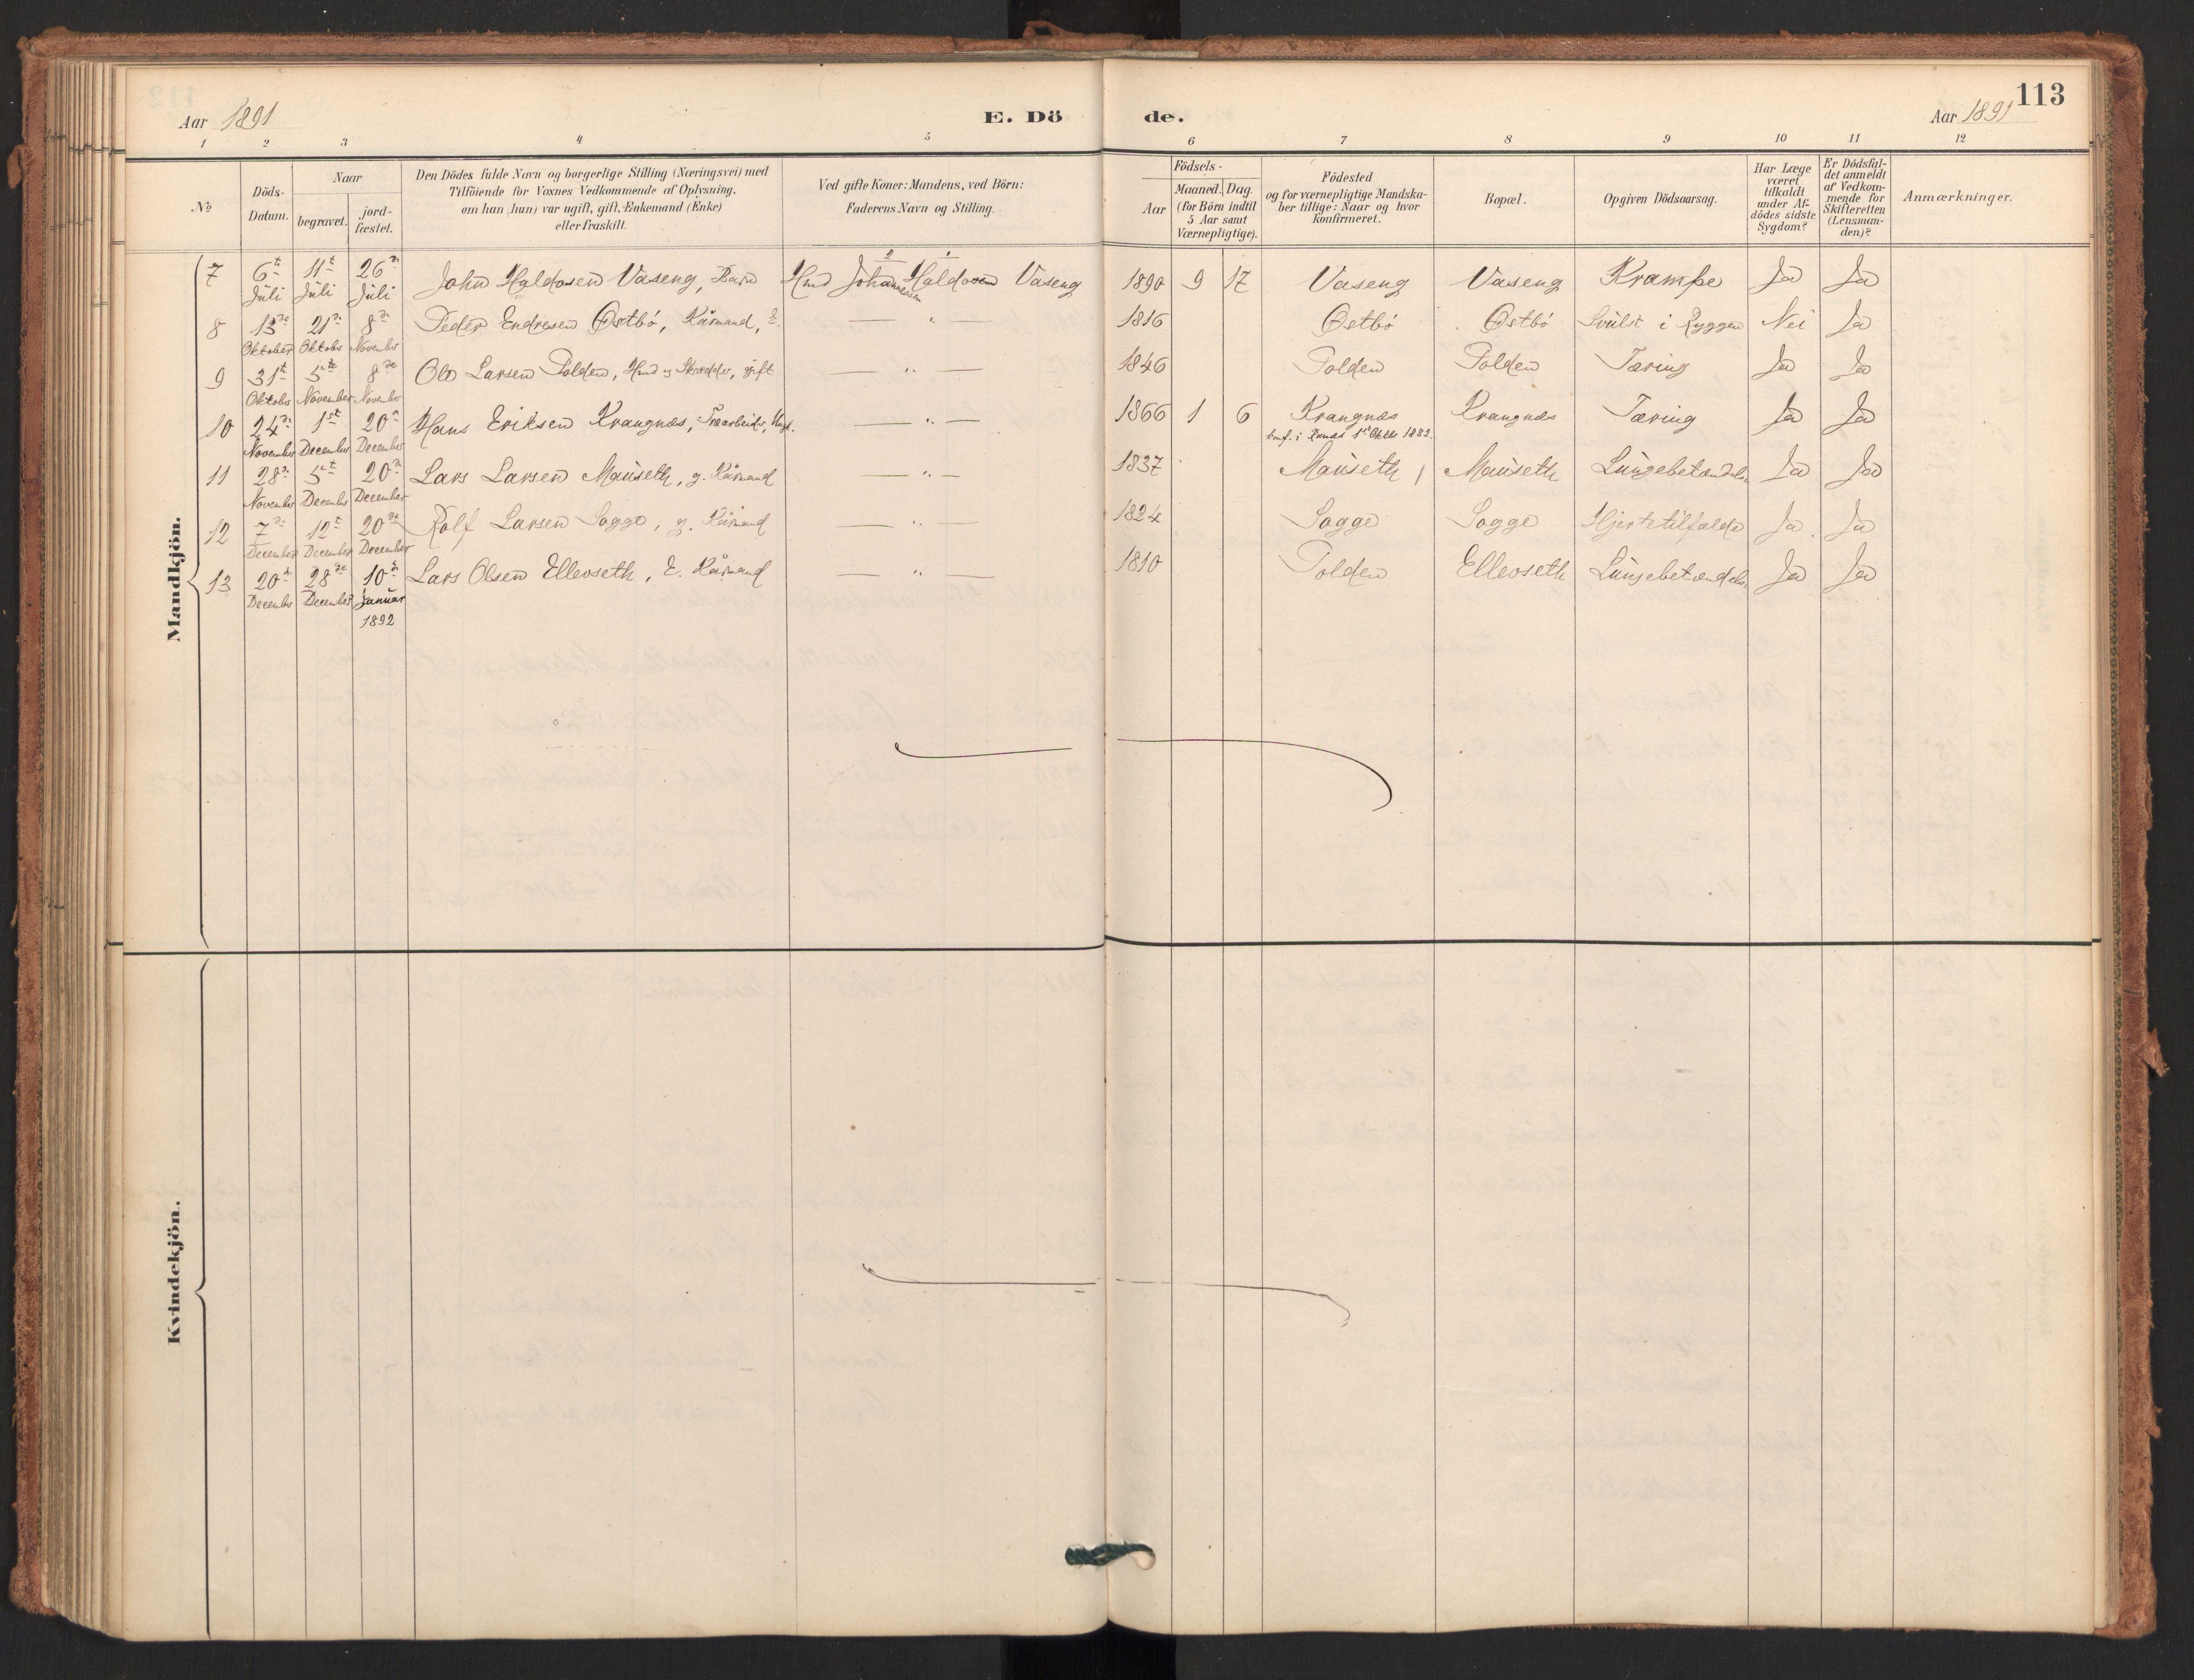 113
Aar 1891 E. Dö de. Aar 1891
1 2 3 4 5 6 7 8 9 10 11 12
№
Döds-
Datum.
Naar
begravet. jord-
fæstet.
Den Dödes fulde Navn og borgerlige Stilling (Næringsvei) med
Tilföiende for Voxnes Vedkommende af Oplysning,
om han (hun) var ugift, gift, Enkemand (Enke)
eller fraskilt.
Ved gifte Koner: Mandens, ved Börn:
Faderens Navn og Stilling.
Födsels-
Aar
Maaned. Dag.
(for Börn indtil
5 Aar samt
Værnepligtige).
Födested
og for værnepligtige Mandska-
ber tillige: Naar og hvor
konfirmeret.
Bopæl.
Opgiven Dödsaarsag.
Har Læge
været
tilkaldt
under Af-
dödes sidste
Sygdom?
Er Dödsfal-
det anmeldt
af Vedkom-
mende for
Skifteretten
(Lensman-
den)?
Anmærkninger.
Mandkjön.
7 6t Juli 11t Juli 26de Juli John Haldosen Vaseng, Barn Hmd Johannesen Haldosen Vaseng 1890 9 17 Vaseng Vaseng Krampe Ja Ja
8 13de Oktober 21de Oktober 8de November Peder Endresen Østbö, Kårmand, — " — 1816 Østbö Østbö Svülst i Ryggen Nei Ja
9 31t Oktober 5te November 8de November Ole Larsen Tolden, Hmd og Skrædder, gift — " — 1846 Tolden Tolden Tæring Ja Ja
10 24de November 1st December 20de December Hans Eriksen Krangnæs, Træarbeider, Ungk. — " — 1866 1 6 Krangnæs Krangnæs Tæring Ja Ja
konf. i 1st Oktbr 1882.
11 28de November 5t December 20de December Lars Larsen Mauseth, g. Kårmand — " — 1837 Mauseth Mauseth Lungebetændelse Ja Ja
12 7de December 12t December 20de December Rolf Larsen Sogge, g. Kårmand — " — 1824 Sogge Sogge Hjertetilfælde Ja Ja
13 20de December 28de December 10de Januar 1892 Lars Olsen Ellevseth, E. Kårmand — " — 1810 Tolden Ellevseth Lungebetændelse Ja Ja
Kvindekjön.